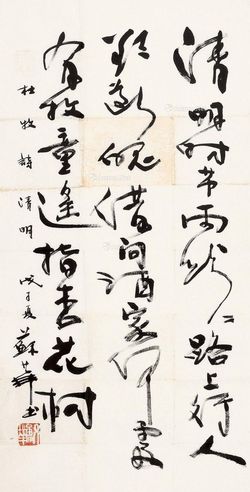 清明时节雨纷々路上行人
欲断魂借问酒家何處
有牧童遥指杏花村
杜牧詩清明 戊子夏 蘇華书